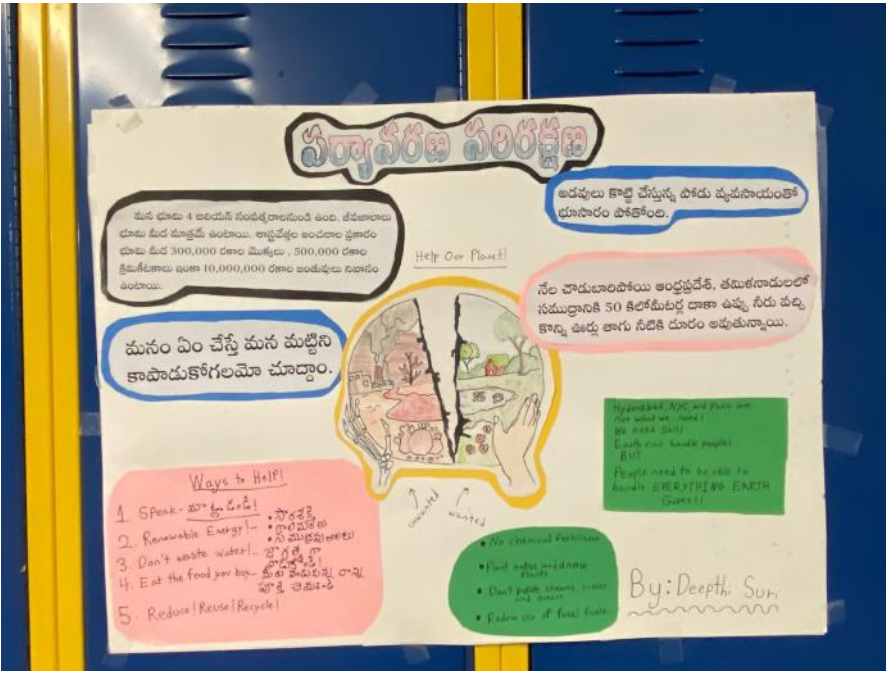 పర్యావరణ పరిరక్షణ
మన భూమి 4 బిలియన్ సంవత్సరాలనుండి ఉంది. జీవజాలాలు
భూమి మీద మాత్రమే ఉంటాయి. శాస్త్రవేత్తల అంచనాల ప్రకారం
భూమి మీద 300,000 రకాల మొక్కలు , 500,000 రకాల
క్రిమికీటకాలు ఇంకా 10,000,000 రకాల జంతువులు నివాసం
ఉంటాయి.
అడవులు కొట్టి చేస్తున్న పోడు వ్యవసాయంతో
భూసారం పోతోంది.
Help Our Planet!
నేల చౌడుబారిపోయి ఆంధ్రప్రదేశ్, తమిళనాడులలో
సముద్రానికి 50 కిలోమీటర్ల దాకా ఉప్పు నీరు వచ్చి
కొన్ని ఊర్లు తాగు నీటికి దూరం అవుతున్నాయి.
మనం ఏం చేస్తే మన మట్టిని
కాపాడుకోగలమో చూద్దాం.
Hyderabad, NYC, and Paris are
not what we need!
We need Soil!
Earth can handle people!
BUT
People need to be able to
handle EVERYTHING EARTH
Gives!!
Ways to Help!
1 Speak - మాట్లాడండి!
2. Renewable Energy! - • సౌరశక్తి
• గాలిమరలు
• సముద్రపు అలలు
3. Don't waste water! - జాగ్రత్త గా
వాడుకోండి!
4. Eat the food you buy - మీరు
పూర్తి
5. Reduce! Reuse! Recycle!
unwanted
wanted
• No chemical fertilizers
• Plant native and diverse
Plants
• Don't pollute streams, rivers
and oceans
• Reduce use of fossil fuels
By: Deepthi Suri